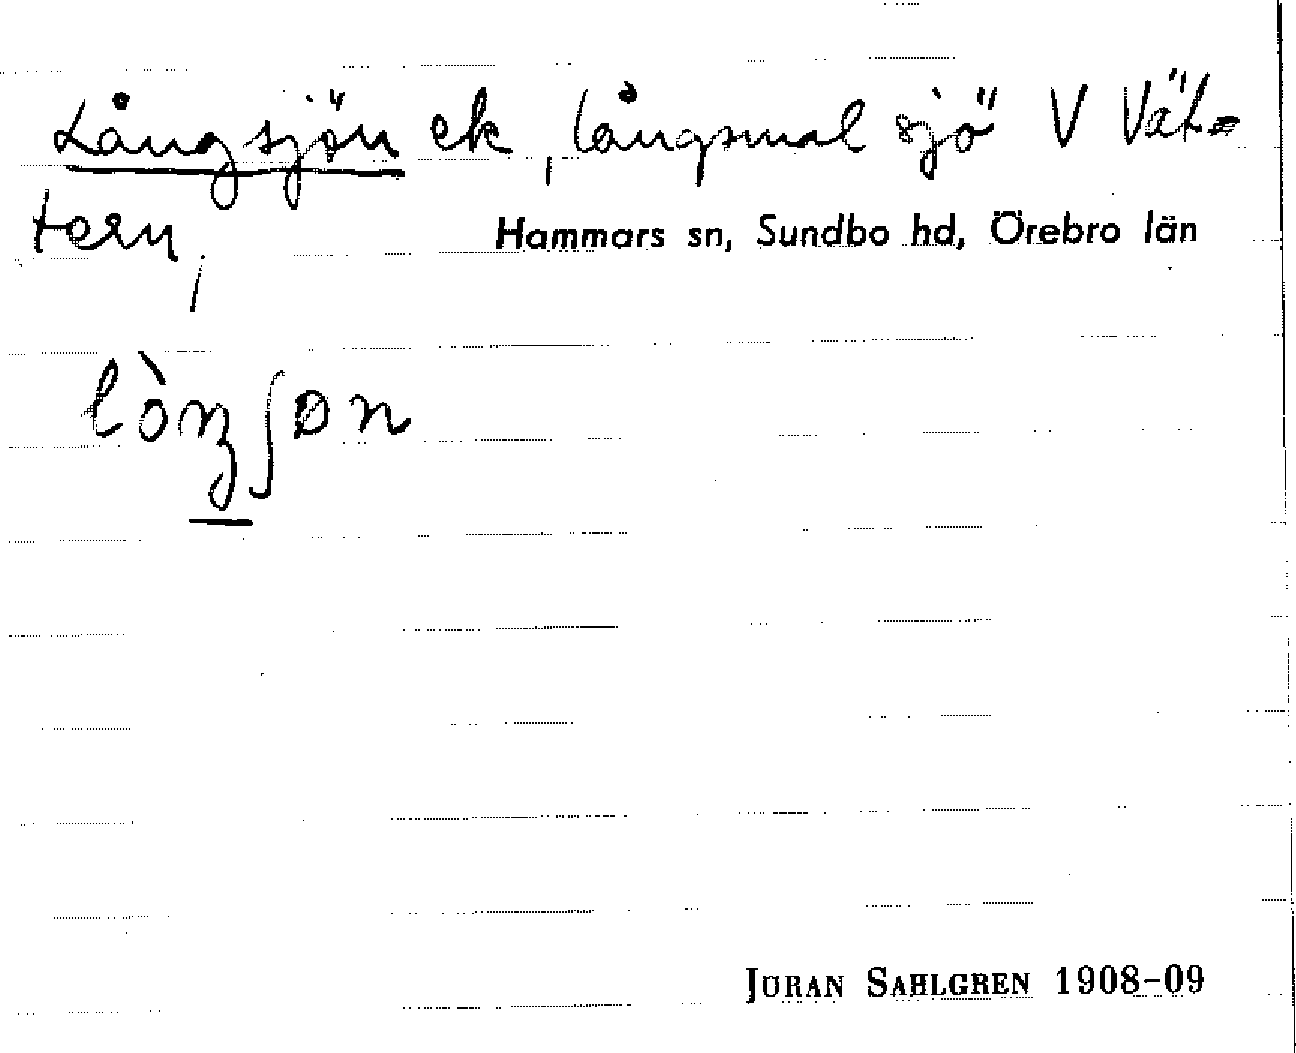 Långsjön ek, långsmal sjö V Vät-
tern,
Hammars sn, Sundbo hd, Örebro län
lòŋʃøn
JÖRAN SAHLGREN 1908-09